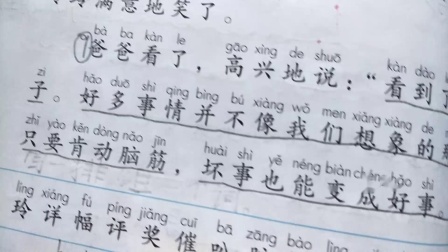 满意地笑了。
bà ba kàn le gāo xìng de shuō kàn dào
⑨爸爸看了，高兴地说：“看到
zi hǎo duō shì qing bìng bú xiàng wǒ men xiǎng xiàng de
子。好多事情并不像我们想象的
zhǐ yào kěn dòng nǎo jīn huài shì yě néng biàn chéng hǎo shì
只要肯动脑筋，坏事也能变成好事
líng xiáng fú píng jiǎng cuī bā zāng bào
玲详幅评奖催